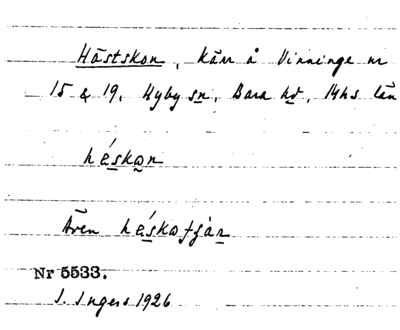 Hästskon, kärr å Vinninge nr
15 & 19, Hyby sn, Bara hd, Mhs län
héskon
Även héskotjär
Nr 5533.
I. Ingers 1926